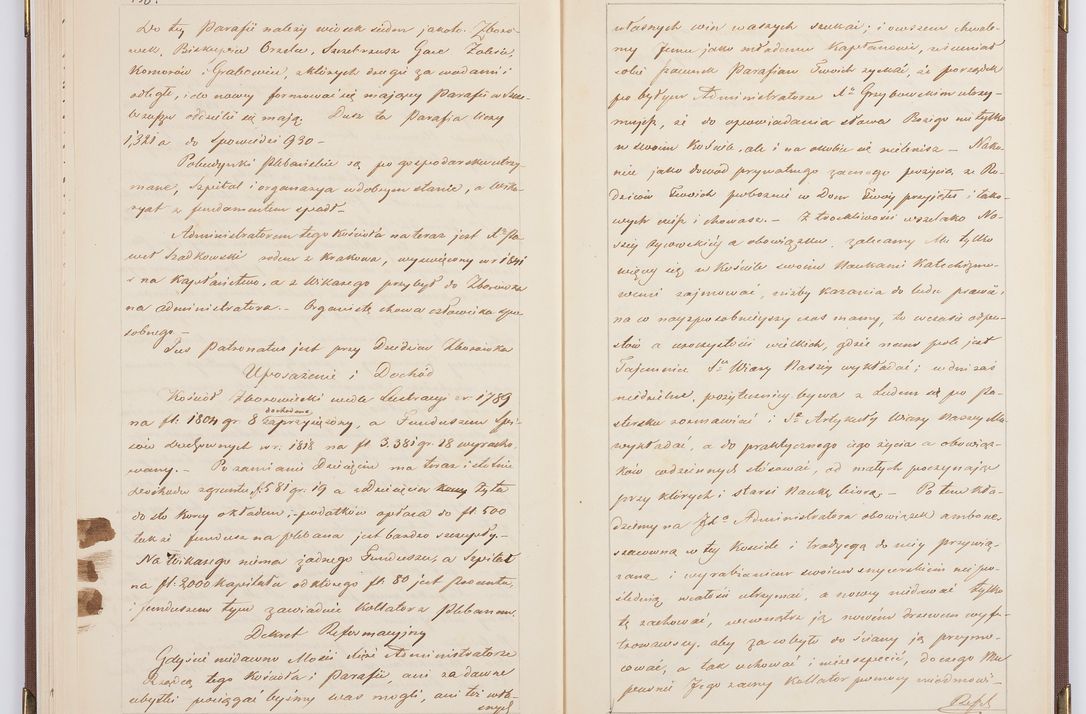 Do tej Parafii należy wiosek siedm jakoto: Zboro-
wek, Biskupice Orzelec, Szczebrzusz Gace Żabiec,
Komorów i Grabowiec, z których drogi za wodami i
odległe, i do nowej formować się mającej Parafii w Szcze-
brzuszu oddzielić się mają. Dusz ta Parafia liczy
1,321 a do Spowiedzi 930 –
Pobudynki Plebańskie są po gospodarsku utrzy-
mane, Szpital i organarya w dobrym stanie, a wika-
ryat z fundamentem spadł –
Administratorem tego Kościoła na teraz jest Xdz Pa-
weł Szadkowski rodem z Krakowa, wyświęcony w r 1841
na Kapłaństwo, a z Wikarego przybył do Zborówka
na administratora. – Organistę chowa człowieka spo-
sobnego –
Jus Patronatus jest przy Dziedzicu Zborówka
Uposażenie i Dochód
Kościoł Zborowiecki wedle Lustracyi z r. 1789
na fl. 1804 gr 8 dochodem zaprzysiężony, a Funduszem Spi-
sów urzędownych w r. 1818 na fl 3.381 gr. 18 wyracho-
wany. – Po zamianie Dziesięcin ma teraz istotnie
dochodu z gruntu fl 581 gr. 19 a z dziesięcin Żyta
do sto Korcy okładem; podatków opłaca do fl. 500
tak że fundusz na plebana jest bardzo szczupły. –
Na Wikarego niema żadnego Funduszu, a Szpital
na fl. 2000 kapitału od którego fl. 80 jest procentu
i funduszem tym zawiaduje Kollatorz Plebanem.
Dekret Reformacyjny
Gdyście niedawno Mości Xięże Administratorze
Rządcą tego Kościoła i Parafii, ani za dawne
ubytki pociągać byśmy was mogli, ani też wła-
snych
własnych win waszych szukać; i owszem chwale-
my Jemu jako młodemu Kapłanowi, że umiał
sobie szacunek Parafian Swoich zyskać, że porządek
po byłym Administratorze Xdz Grzybowskim utrzy-
muje, że do opowiadania słowa Bożego nie tylko
w swoim Kościele, ale i na osobie się nielenisz – Nako-
niec jako dowód prywatnego zacnego pożycia, że Ro-
dziców Swoich pobożnie w Dom Swój przyjąłeś i tako-
wych czcisz i chowasz. – Z troskliwości wszelako Na-
szej Ojcowskiej a obowiązku, zalecamy Mu tylko
więcej się w Kościele swoim Naukami Katechizmo-
wemi zajmować, niżby Kazania do ludu prawić;
na co najsposobniejszy czas mamy, to w czasie odpu-
stów a uroczystości wielkich, gdzie nam pole jest
Tajemnice S. Wiary Naszej wykładać; w dni zaś
niedzielne, pożyteczniej bywa z Ludem się po Pa-
stersku rozmawiać i Ste Artykuły Wiary Naszej Mu
wykładać, a do praktycznego jego życia a obowiąz-
ków codziennych stosować, od małych poczynając
przy których i starsi Naukę biorą. – Po tem kła-
dziemy na JXdza Administratora obowiązek ambonę
szacowną w tej Kościele i tradycyą do niej przywią-
zaną i wyrabianiem swoiem snycerskiem niepo-
ślednią w całości utrzymać, a nowej niedawać tylko
tę zachować, wewnątrz ją nowem drzewem wyfu-
trowawszy, aby za w było do ściany ją przymo-
cować, a tak uchować i nieszpecić, do czego Mu
pewnie Jego zacny Kollator pomocy nieodmówi –